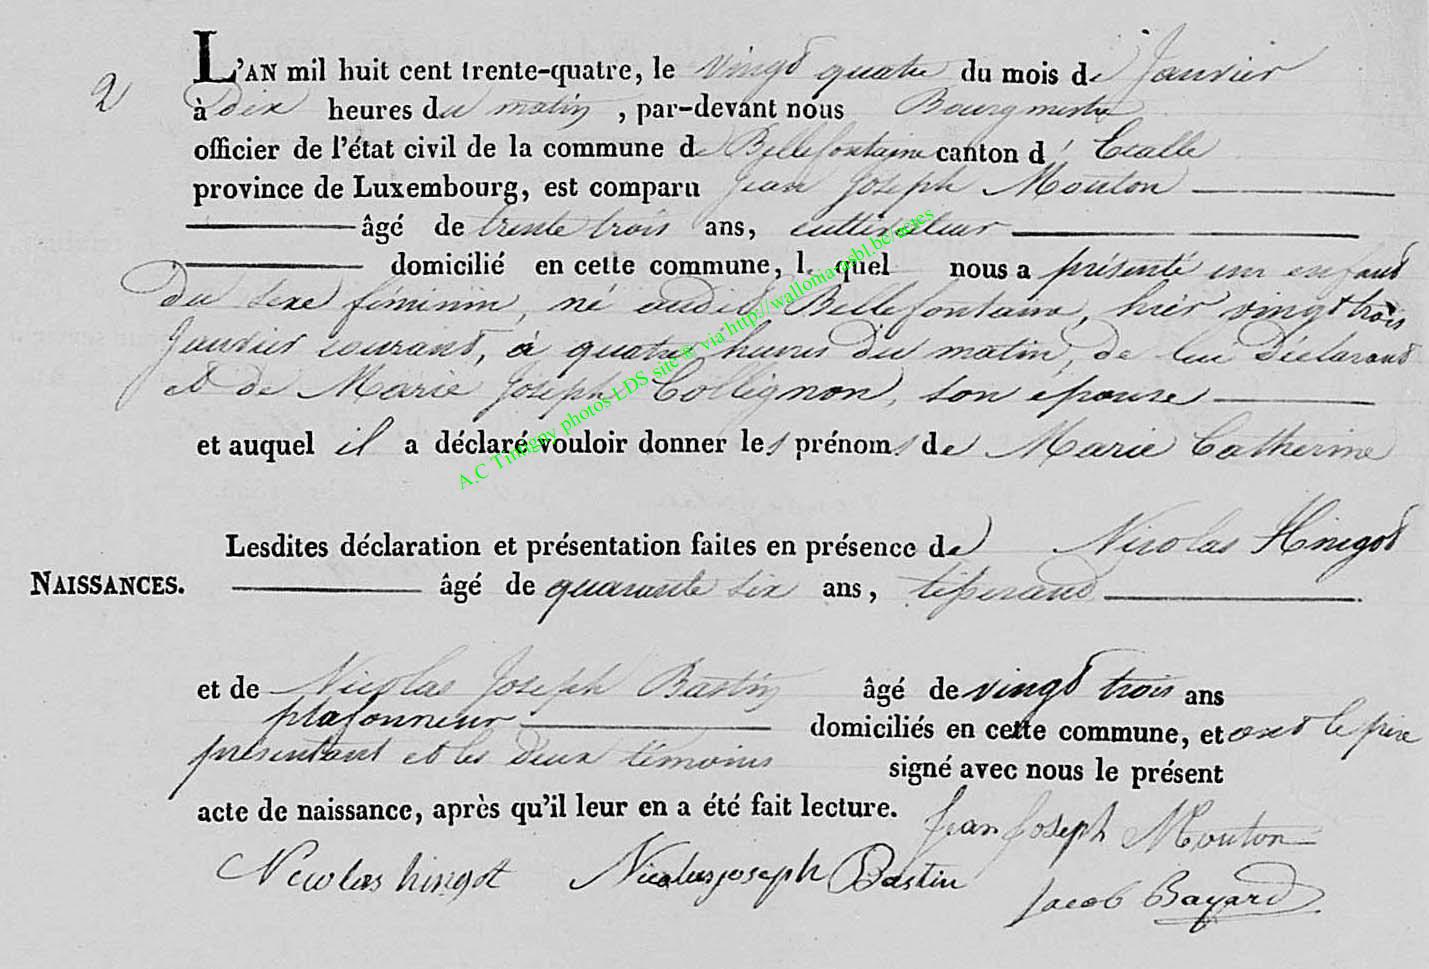 2
L'AN mil huit cent trente-quatre, le vingt quatre du mois de Janvier
à dix heures du matin, par-devant nous Bourgmestre
officier de l'état civil de la commune de Bellefontaine canton d' Etalle
province de Luxembourg, est comparu Jean Joseph Mouton
âgé de trente trois ans, cultivateur
domicilié en cette commune, l quel nous a présenté un enfant
du sexe féminin, né audit Bellefontaine, hier vingt trois
Janvier courant, à quatre heures du matin, de lui déclarant
et de Marie Joseph Collignon, son épouse
et auquel il a déclaré vouloir donner les prénoms de Marie Catherine
Lesdites déclaration et présentation faites en présence de Nicolas Hingot
NAISSANCES.
âgé de quarante six ans, tisserand
et de Nicolas Joseph Bastin âgé de vingt trois ans
plafonneur domiciliés en cette commune, et ont le père
présentant et les deux témoins signé avec nous le présent
acte de naissance, après qu'il leur en a été fait lecture.
Jean Joseph Mouton
Nicolas hingot Nicolas joseph Bastin
Jacob Bayard
A.C Tintigny photos LDS site © via http://wallonia-asbl.be/actes